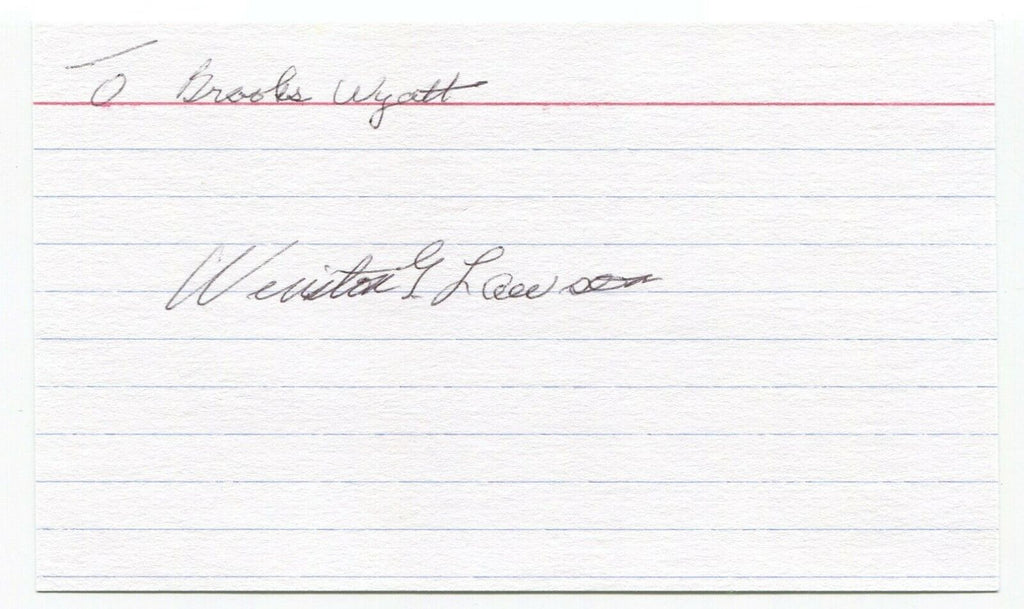 To Brooks Wyatt
Winston G Lawson